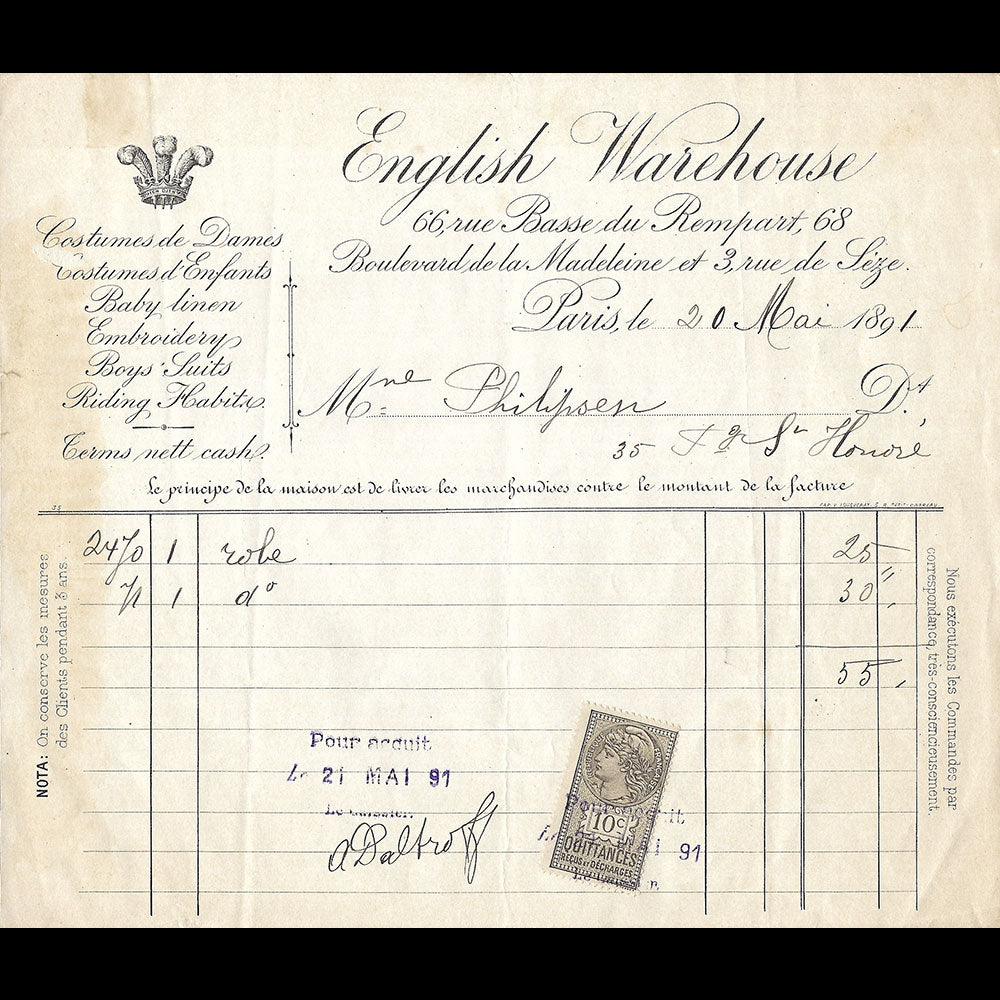 English Warehouse
66, rue Basse du Rempart, 68
Boulevard de la Madeleine et 3, rue de Sèze.
Paris, le 20 Mai 1891
Costumes de Dames
Costumes d'Enfants
Baby linen
Embroidery
Boys' Suits
Riding Habits.
Terms nett cash.
Mme Philipsen Dt
35 Fg St Honoré
Le principe de la maison est de livrer les marchandises contre le montant de la facture
35
2470 1 robe 25
71 1 do 30 "
55
NOTA: On conserve les mesures
des Clients pendant 3 ans.
Nous exécutons les Commandes par
correspondance, très-consciencieusement.
Pour acquit
Le 21 MAI 91
Le Caissier.
ADaltroff
10c
QUITTANCES
REÇUS ET DÉCHARGES
Pour acquit
91